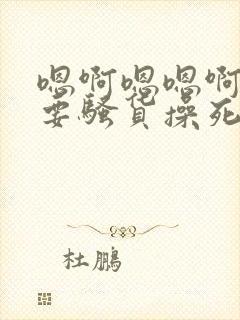 嗯啊嗯嗯啊
要骚货操死
杜鹏